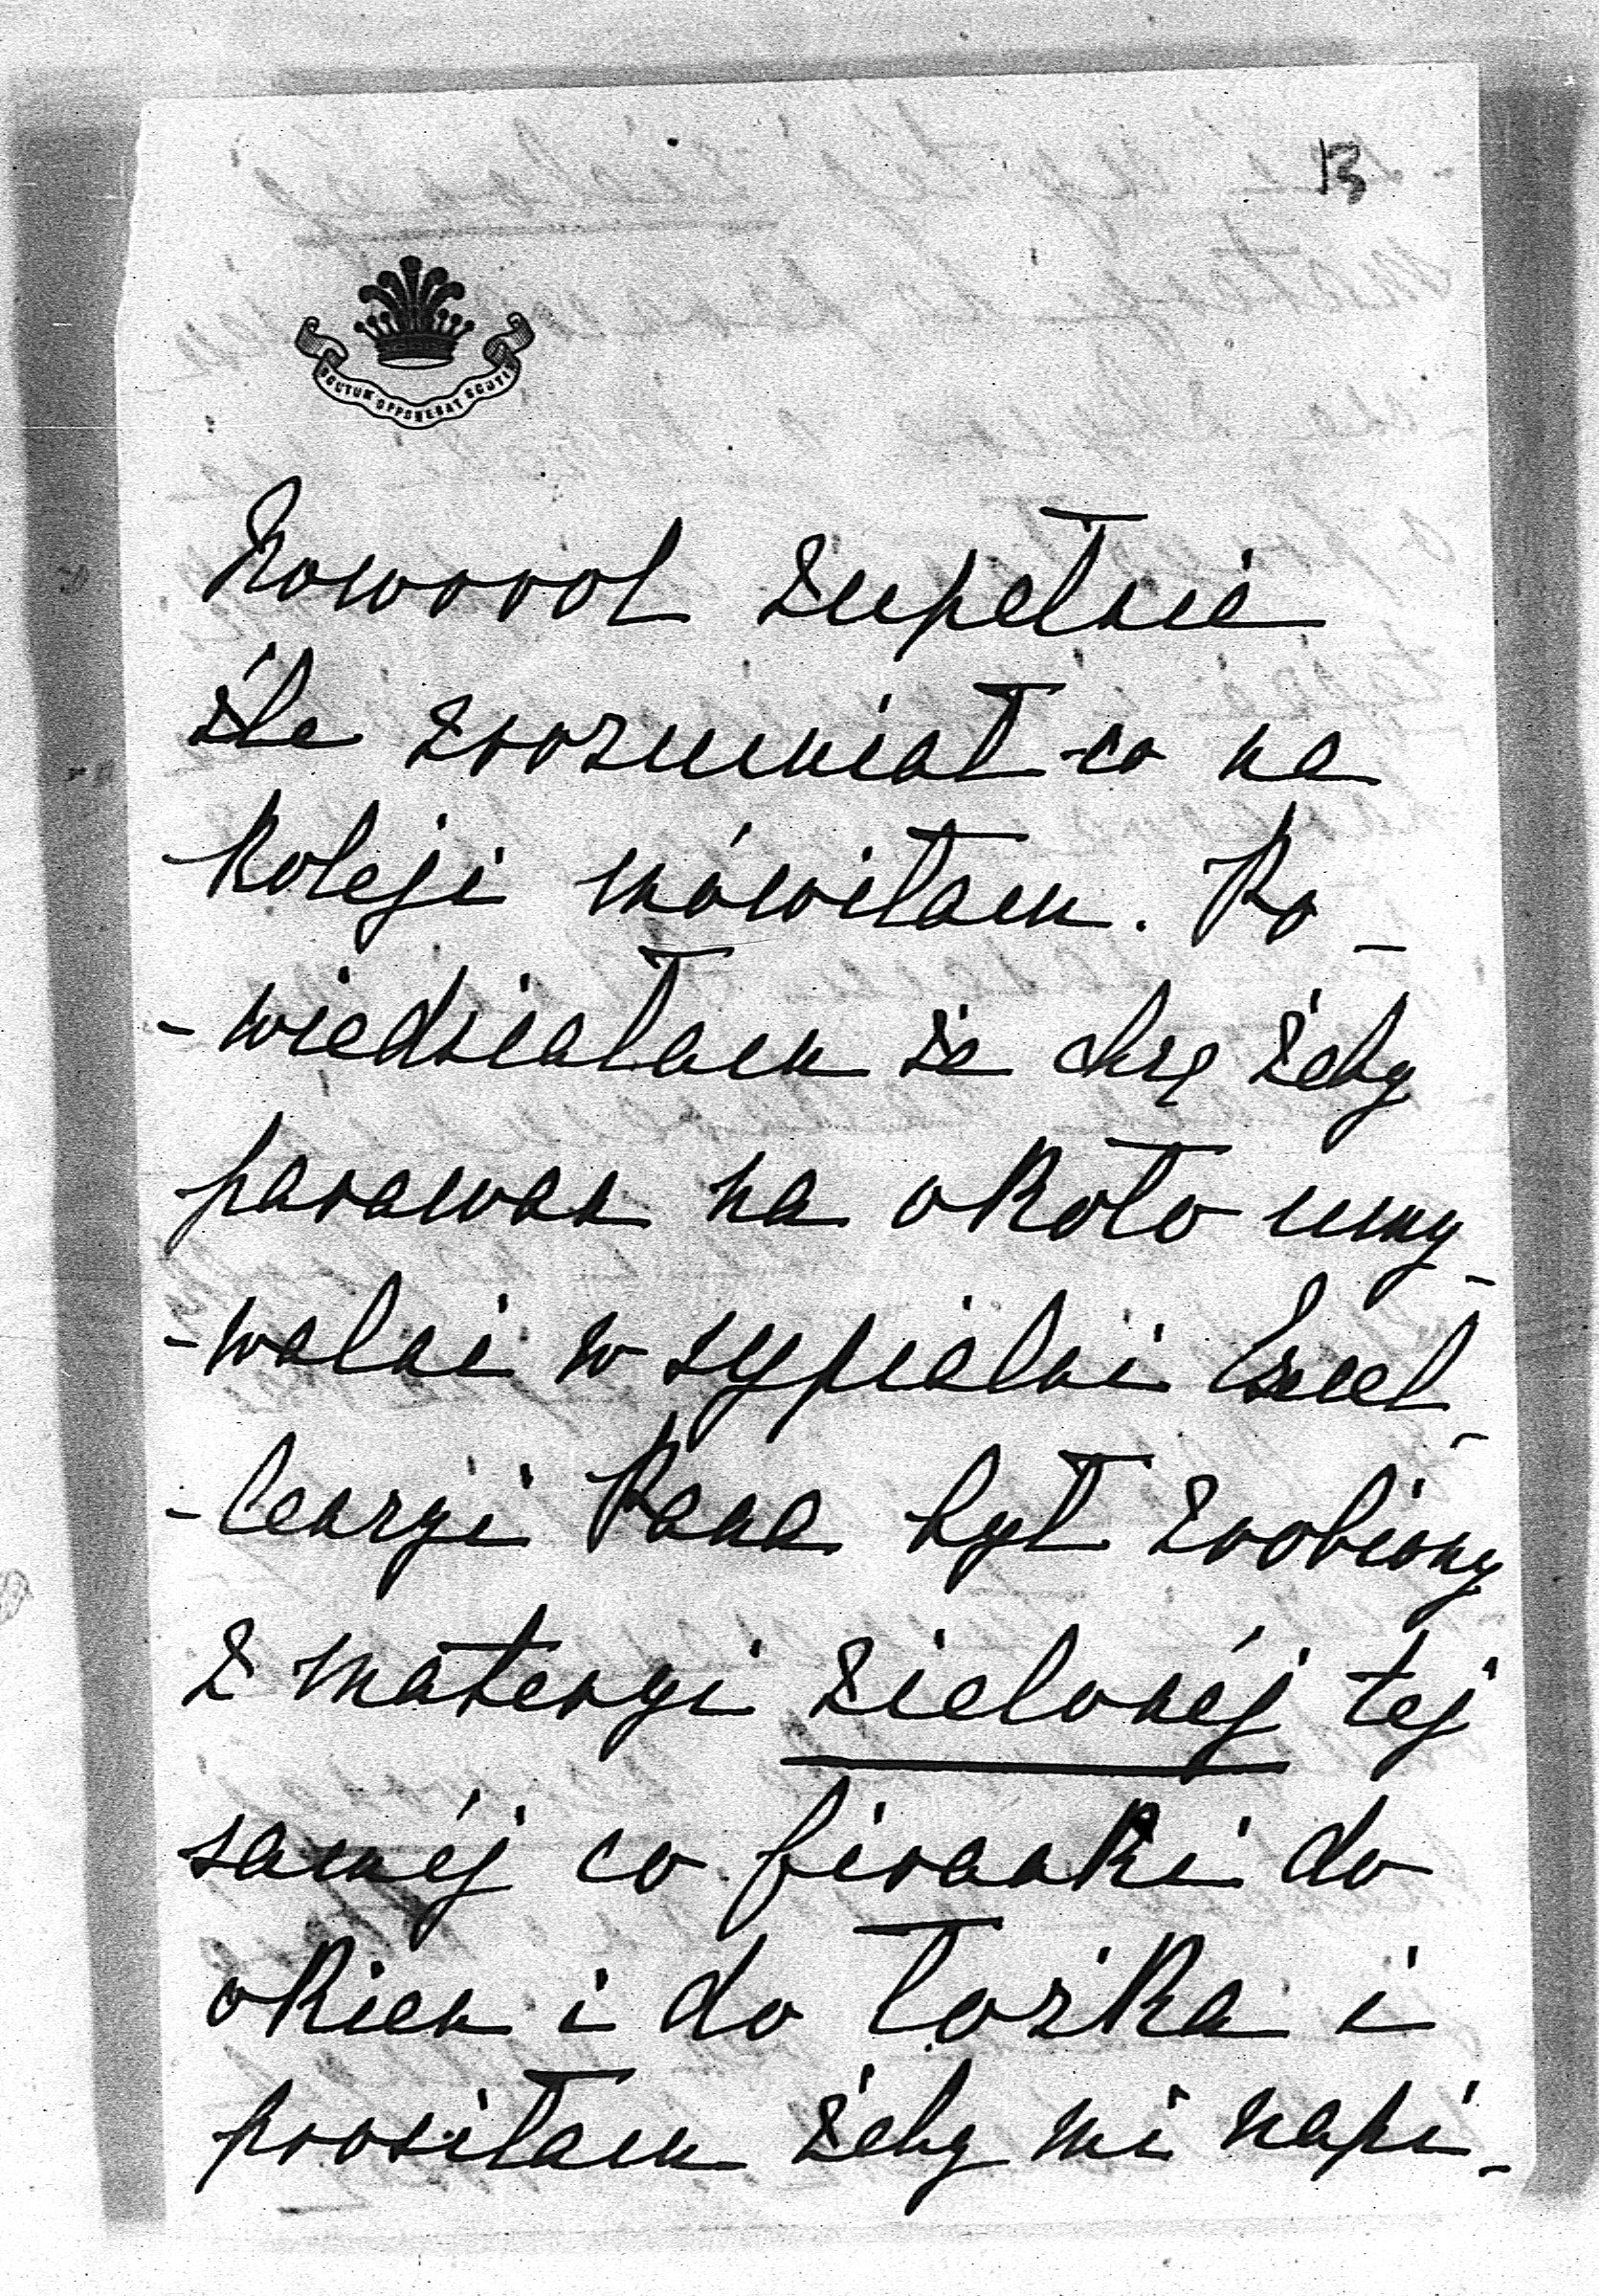 13
SCUTUM OPPONEBAT SCUTIS
Nowovol zupełnie
źle zrozumiał co na
koleji mówiłam. Po_
-wiedziałam że chcę żeby
parawan na około umy_
-walni w sypialni Excel_
-lencyi Pana był zrobiony
z materyi zielonéj tej
saméj co firanki do
okien i do łóżka i
prosiłam żeby mi napi_